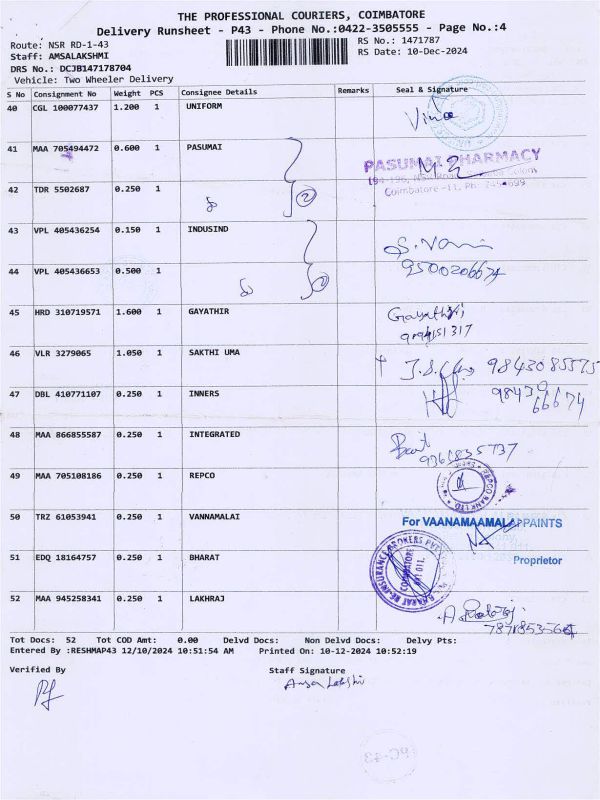 THE PROFESSIONAL COURIERS, COIMBATORE
Delivery Runsheet - P43 - Phone No.:0422-3505555 - Page No.:4
Route: NSR RD-1-43
RS No.: 1471787
Staff: AMSALAKSHMI
RS Date: 10-Dec-2024
DRS No.: DCJB147178704
Vehicle: Two Wheeler Delivery
S No Consignment No Weight PCS Consignee Details Remarks Seal & Signature
40 CGL 100077437 1.200 1 UNIFORM
41 MAA 705494472 0.600 1 PASUMAI
PASUMAI PHARMACY
42 TDR 5502687 0.250 1
Coimbatore -11, Ph:
2
43 VPL 405436254 0.150 1 INDUSIND
44 VPL 405436653 0.500 1
9500206674
45 HRD 310719571 1.600 1 GAYATHIR Gayathiri
46 VLR 3279065 1.050 1 SAKTHI UMA
9843085575
47 DBL 410771107 0.250 1 INNERS
98430
66674
48 MAA 866855587 0.250 1 INTEGRATED
49 MAA 705108186 0.250 1 REPCO
REPCO BANK LTD
50 TRZ 61053941 0.250 1 VANNAMALAI For VAANAMAAMALAI PAINTS
51 EDQ 18164757 0.250 1 BHARAT Proprietor
52 MAA 945258341 0.250 1 LAKHRAJ
Tot Docs: 52 Tot COD Amt: 0.00 Delvd Docs: Non Delvd Docs: Delvy Pts:
Entered By :RESHMAP43 12/10/2024 10:51:54 AM Printed On: 10-12-2024 10:52:19
Verified By Staff Signature